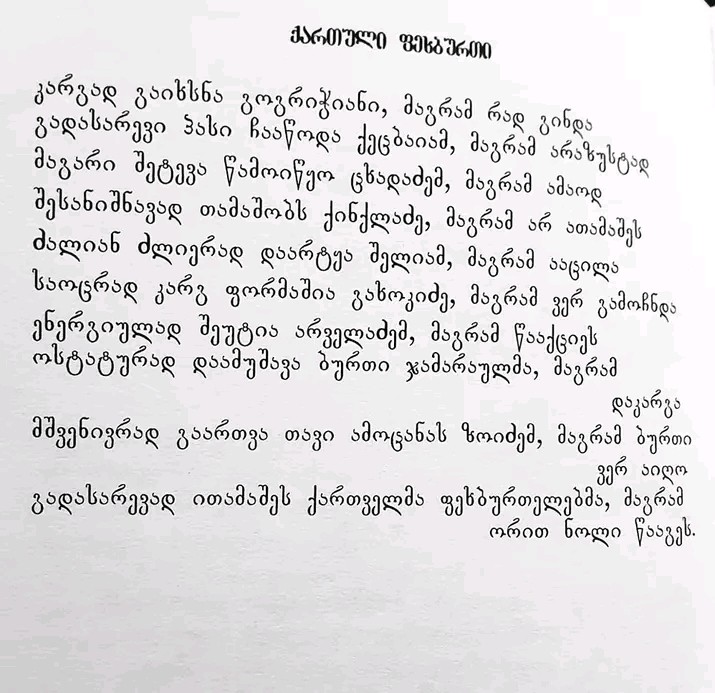 ქართული ფეხბურთი
კარგად გაიხსნა გოგრიჭიანი, მაგრამ რად გინდა
გადასარევი პასი ჩააწოდა ქეცბაიამ, მაგრამ არაზუსტად
მაგარი შეტევა წამოიწყო ცხადაძემ, მაგრამ ამაოდ
შესანიშნავად თამაშობს ქინქლაძე, მაგრამ არ ათამაშეს
ძალიან ძლიერად დაარტყა შელიამ, მაგრამ ააცილა
საოცრად კარგ ფორმაშია გახოკიძე, მაგრამ ვერ გამოჩნდა
ენერგიულად შეუტია არველაძემ, მაგრამ წააქციეს
ოსტატურად დაამუშავა ბურთი ჯამარაულმა, მაგრამ
დაკარგა
მშვენივრად გაართვა თავი ამოცანას ზოიძემ, მაგრამ ბურთი
ვერ აიღო
გადასარევად ითამაშეს ქართველმა ფეხბურთელებმა, მაგრამ
ორით ნოლი წააგეს.